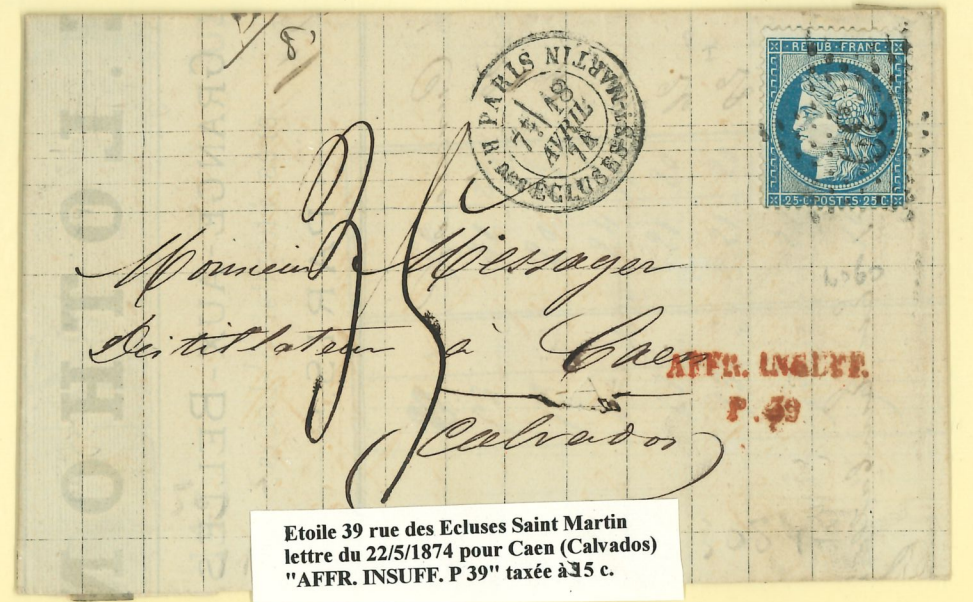 8'
R. DES ECLUSES-ST-MARTIN PARIS
7E 18
AVRIL
74
REPUB·FRANC
25·C·POSTES·25·C
39
35
Monsieur Messager
Distillateur à Caen
Calvados
AFFR. INSUFF.
P. 39
Etoile 39 rue des Ecluses Saint Martin
lettre du 22/5/1874 pour Caen (Calvados)
"AFFR. INSUFF. P 39" taxée à 35 c.